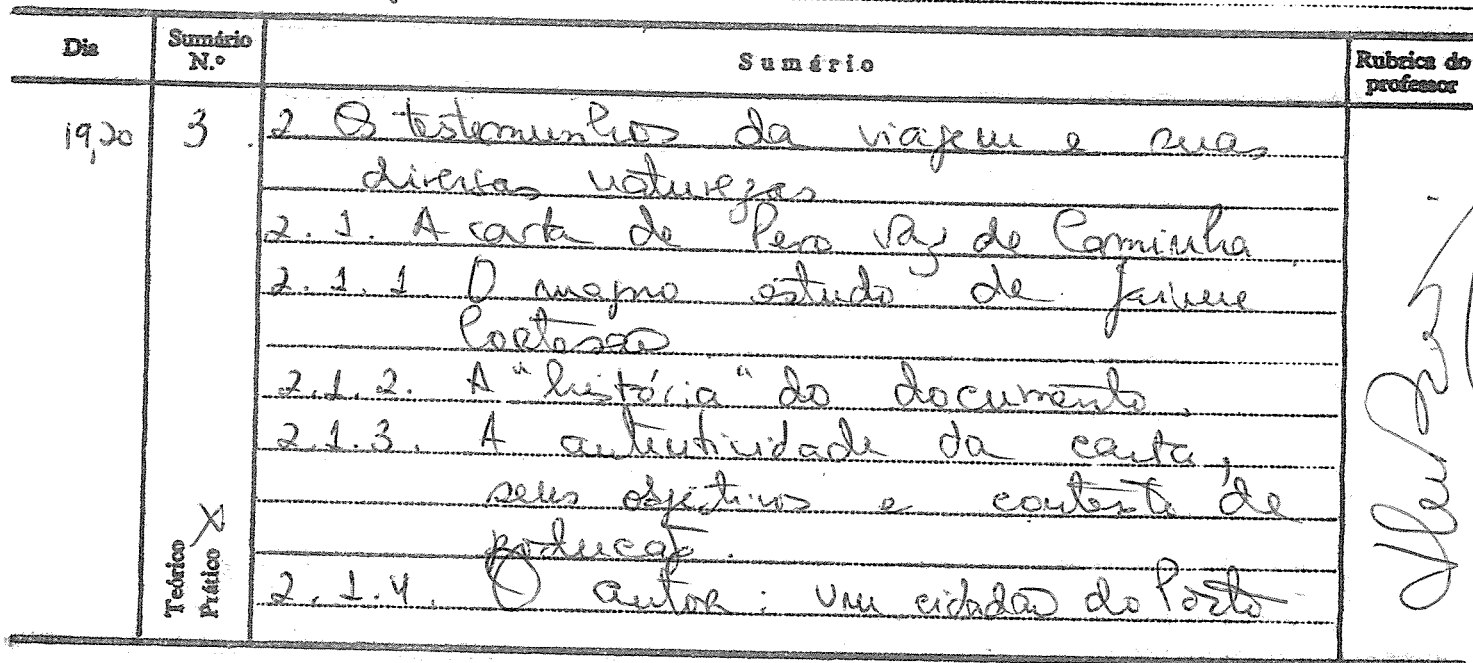 Dia Sumário N.º Sumário Rubrica do professor
19,20 3 2 Os testemunhos da viajem e suas
diversas naturezas
2.1. A carta de Pero Vaz de Caminha
2.1.1 O magno estudo de Jaime
Cortesão
2.1.2. A "história" do documento.
2.1.3. A autenticidade da carta,
seus objectivos e contexto de
produção.
2.1.4. O autor: um cidadão do Porto
Teórico
Prático X